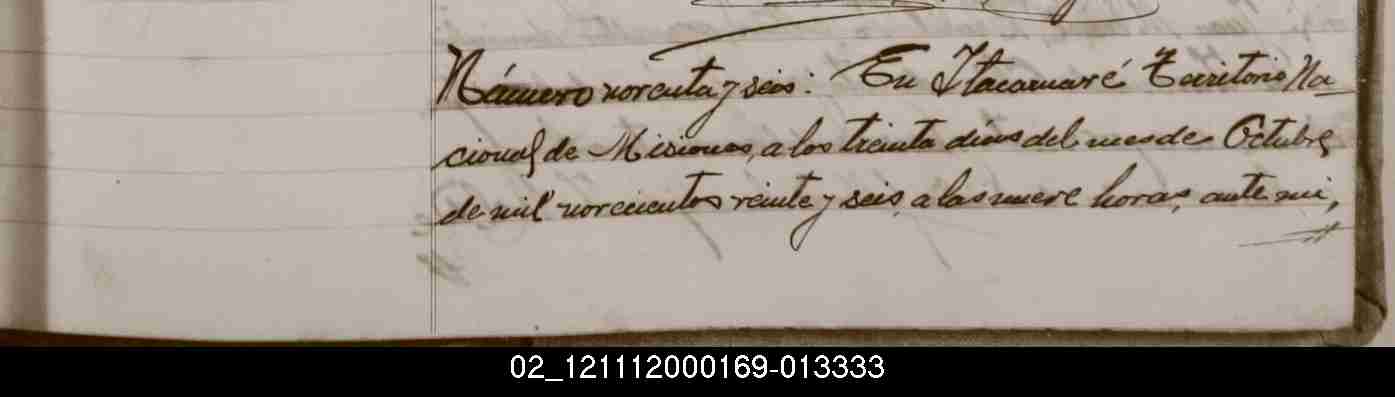 Número noventa y seis: En Itacaruaré Territorio Na-
cional de Misiones, a los treinta días del mes de Octubre
de mil novecientos veinte y seis, a las nueve horas, ante mi,
02_121112000169-013333